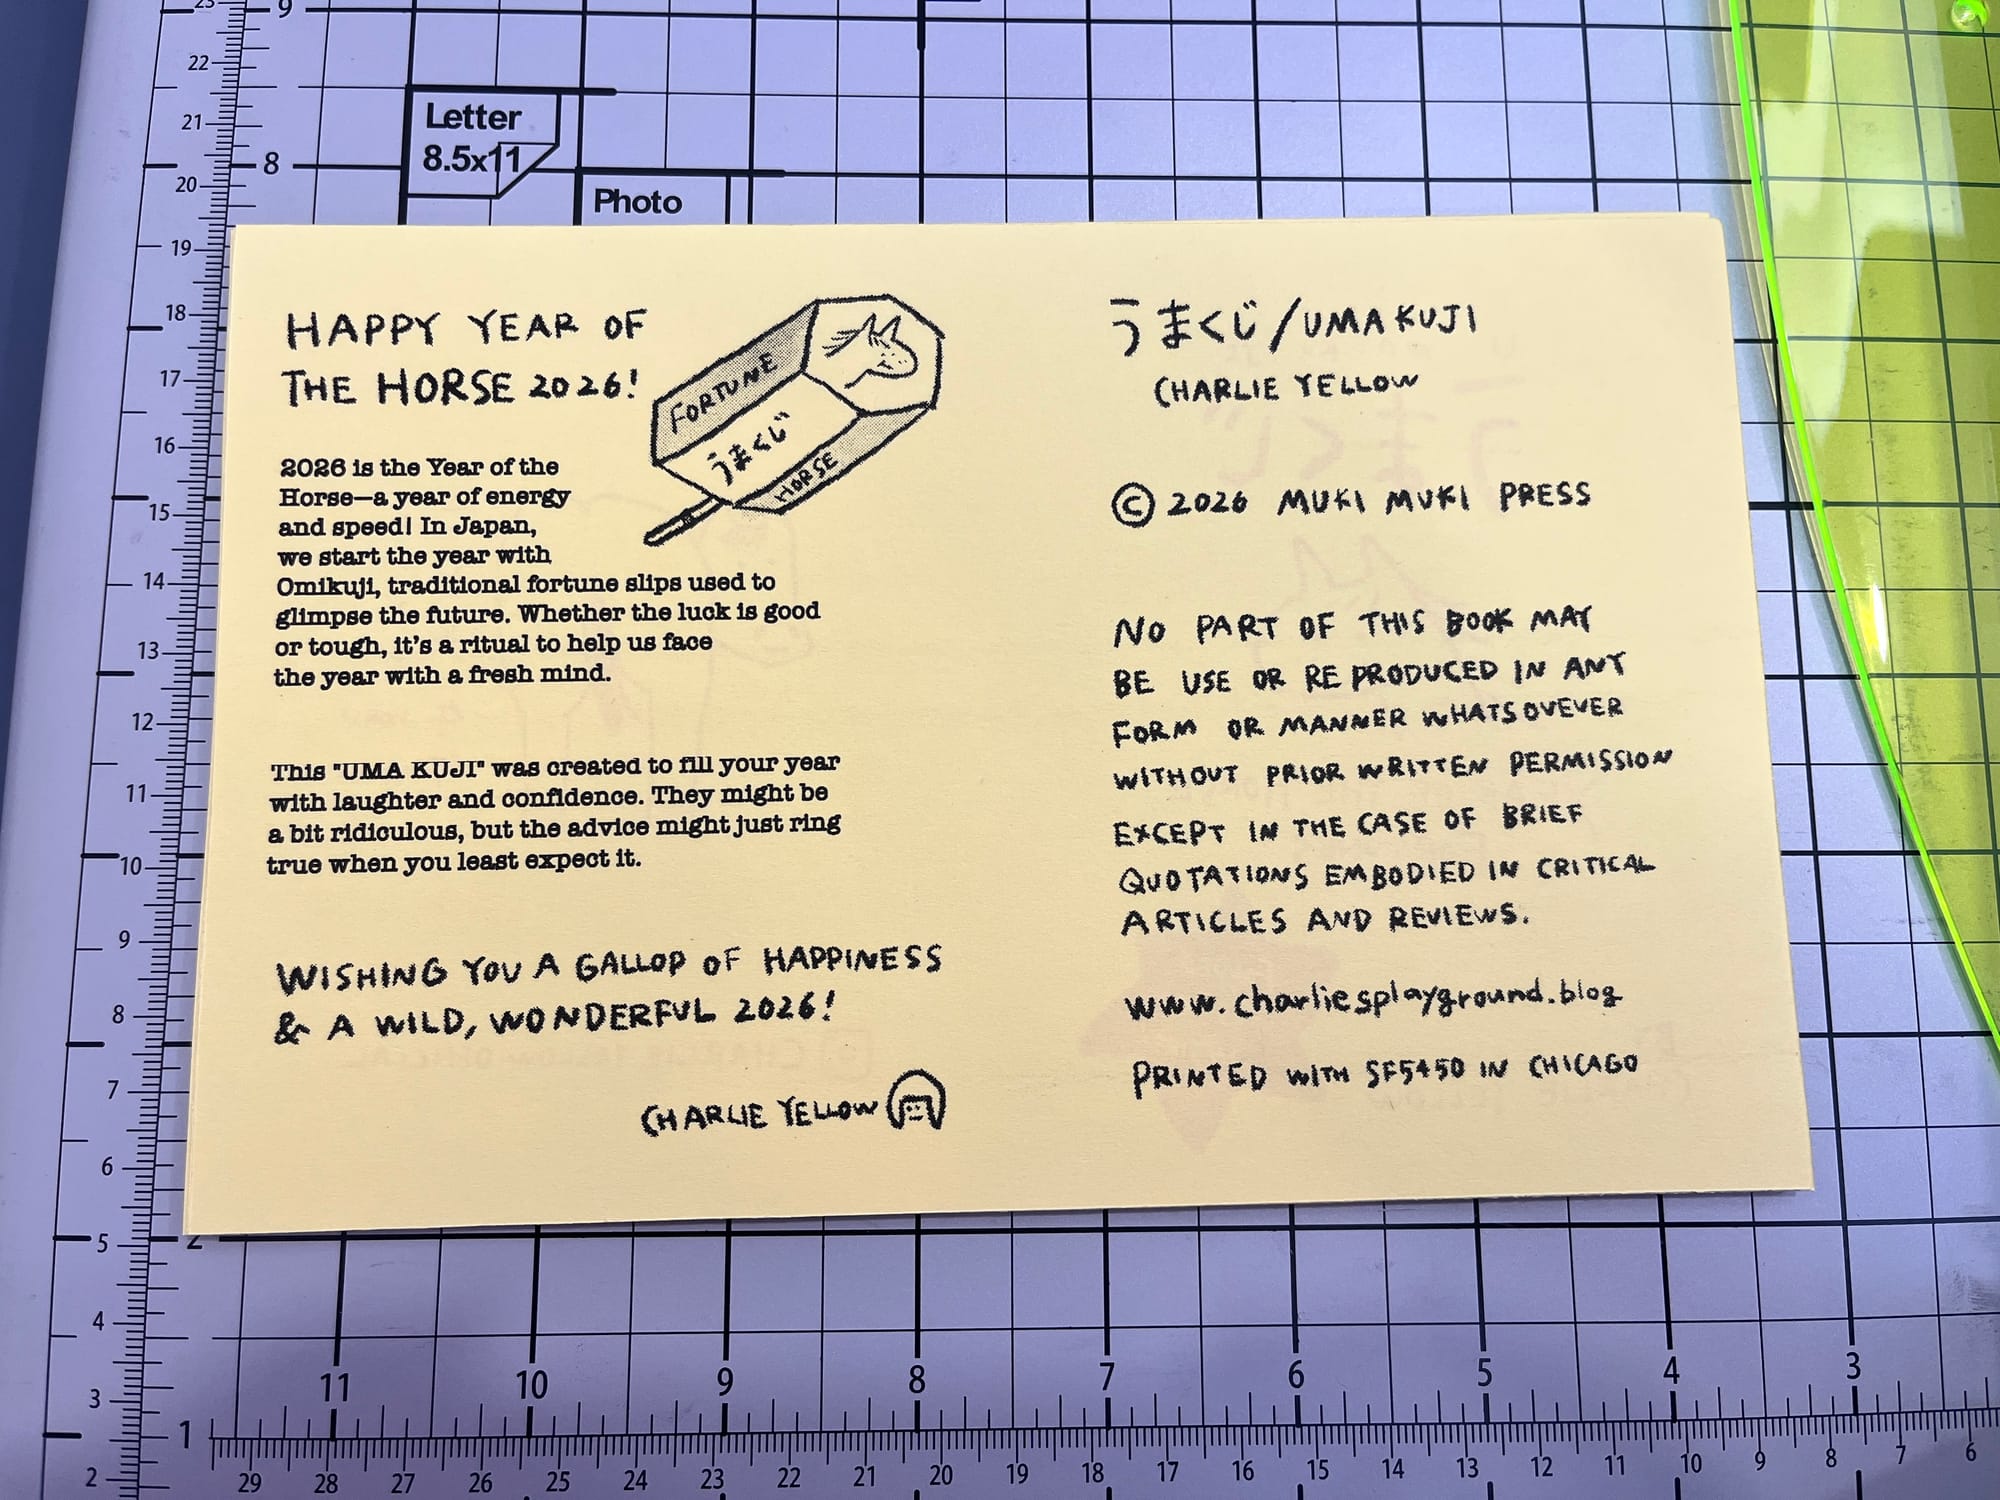 23
9
22
21
8
20
Letter
8.5x11
Photo
19
18
17
16
15
14
13
12
11
10
9
8
7
6
5
2
4
3
1
2
HAPPY YEAR OF
THE HORSE 2026!
FORTUNE
うまくじ
HORSE
2026 is the Year of the
Horse—a year of energy
and speed! In Japan,
we start the year with
Omikuji, traditional fortune slips used to
glimpse the future. Whether the luck is good
or tough, it's a ritual to help us face
the year with a fresh mind.
This "UMA KUJI" was created to fill your year
with laughter and confidence. They might be
a bit ridiculous, but the advice might just ring
true when you least expect it.
WISHING YOU A GALLOP OF HAPPINESS
& A WILD, WONDERFUL 2026!
CHARLIE YELLOW
うまくじ/UMA KUJI
CHARLIE YELLOW
© 2026 MUKI MUKI PRESS
NO PART OF THIS BOOK MAY
BE USE OR REPRODUCED IN ANY
FORM OR MANNER WHATSOVEVER
WITHOUT PRIOR WRITTEN PERMISSION
EXCEPT IN THE CASE OF BRIEF
QUOTATIONS EMBODIED IN CRITICAL
ARTICLES AND REVIEWS.
www.charliesplayground.blog
PRINTED WITH SF5450 IN CHICAGO
11 10 9 8 7 6 5 4 3
29 28 27 26 25 24 23 22 21 20 19 18 17 16 15 14 13 12 11 10 9 8 7 6